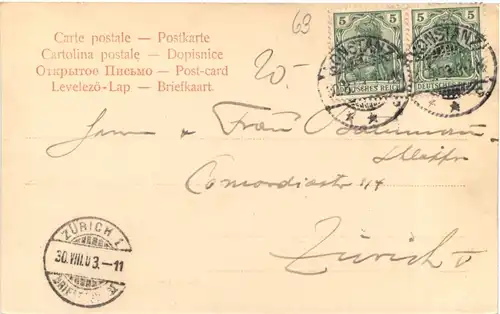 Carte postale — Postkarte
Cartolina postale — Dopisnice
Открытое Письмо — Post-card
Levelező-Lap — Briefkaart.
69
20.-
5 5
5 5
DEUTSCHES REICH
DEUTSCHES
KONSTANZ
KONSTANZ
Herrn & Frau
Concordiastr
Zürich V
ZÜRICH 1
30.VIII.03.-11